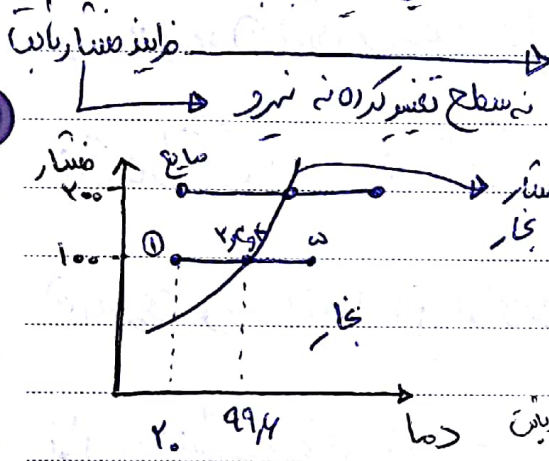 فرایند فشار ثابت
نه سطح تغییر کرده نه نیرو
فشار
مایع
۲۰۰
۱۰۰
①
۲و۳و۴
۵
فشار
بخار
بخار
۲۰
۹۹٫۶
دما
ثابت